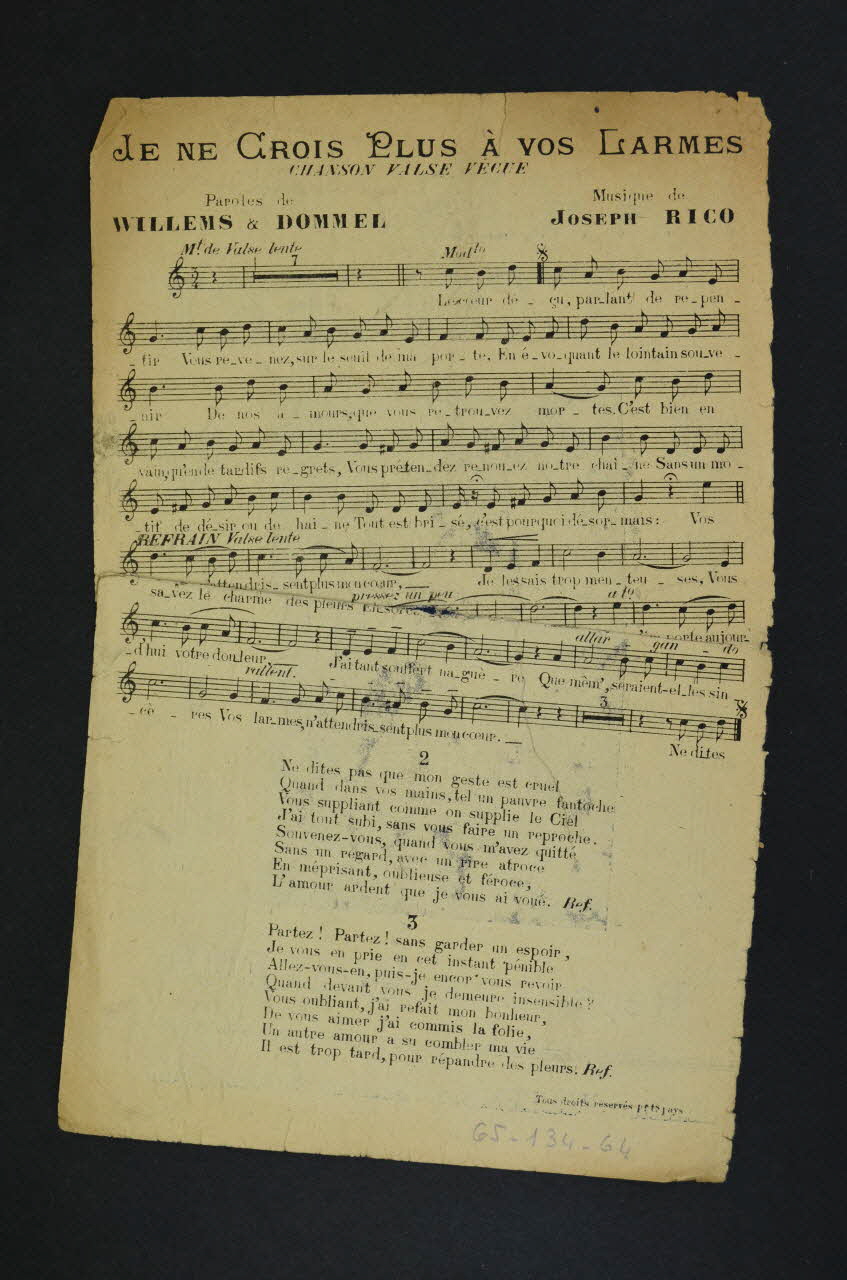 JE NE CROIS PLUS À VOS LARMES
CHANSON VALSE VECUE
Paroles de
WILLEMS & DOMMEL
Musique de
JOSEPH RICO
Mt. de Valse lente
7
Modto
Le cœur dé - çu, par-lant de re-pen -
- tir Vous re-ve-nez, sur le seuil de ma por - te. En é-vo-quant le lointain sou-ve -
- nir De nos a - mours, que vous re-trou-vez mor - tes. C'est bien en
vain, pr'en de tar-difs re-grets, Vous pré-ten-dez re-nou-ez no-tre chaî - ne Sans un mo -
- tif de dé-sir ou de hai - ne Tout est bri - sé, c'est pourquoi dé-sor-mais: Vos
REFRAIN Valse lente
n'attendris-sent plus mon cœur, Je les sais trop men - teu - ses, Vous
pressez un peu
a to
sa-vez le charme des pleurs
porte aujour-
rallent.
allar - gan - do
- d'hui votre douleur J'ai tant souffert na-guè - re Que mêm', seraient-el-les sin -
3
- cè - res Vos lar-mes, n'attendris-sent plus mon cœur.
Ne dites
2
Ne dites pas que mon geste est cruel
Quand dans vos mains, tel un pauvre fantoche
Vous suppliant comme on supplie le Ciel
J'ai tout subi, sans vous faire un reproche.
Souvenez-vous, quand vous m'avez quitté
Sans un regard, avec un rire atroce
En méprisant, oublieuse et féroce,
L'amour ardent que je vous ai voué. Ref.
3
Partez! Partez! sans garder un espoir,
Je vous en prie en cet instant pénible
Allez-vous-en, puis-je encor' vous revoir
Quand devant vous je demeure insensible?
Vous oubliant, j'ai refait mon bonheur,
De vous aimer j'ai commis la folie,
Un autre amour a su combler ma vie
Il est trop tard, pour répandre des pleurs. Ref.
Tous droits réservés pr ts pays
65-134-64